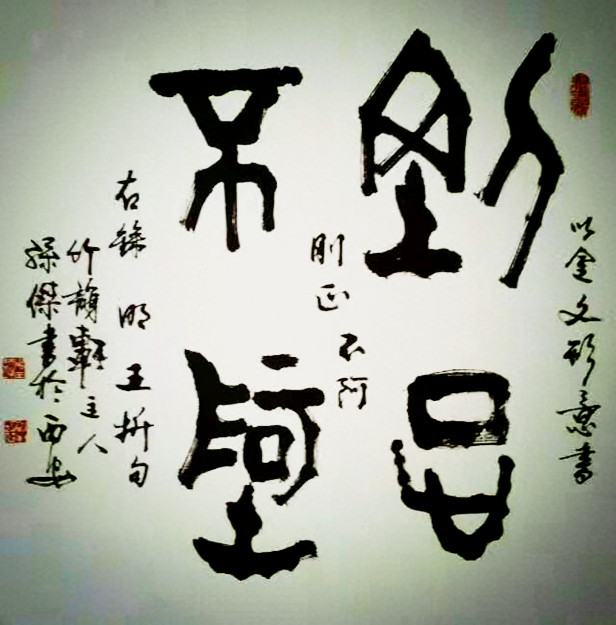 以金文形意書
剛正
刚正不阿
不阿
右錄明王句
竹韻軒主人
孫傑書於西安